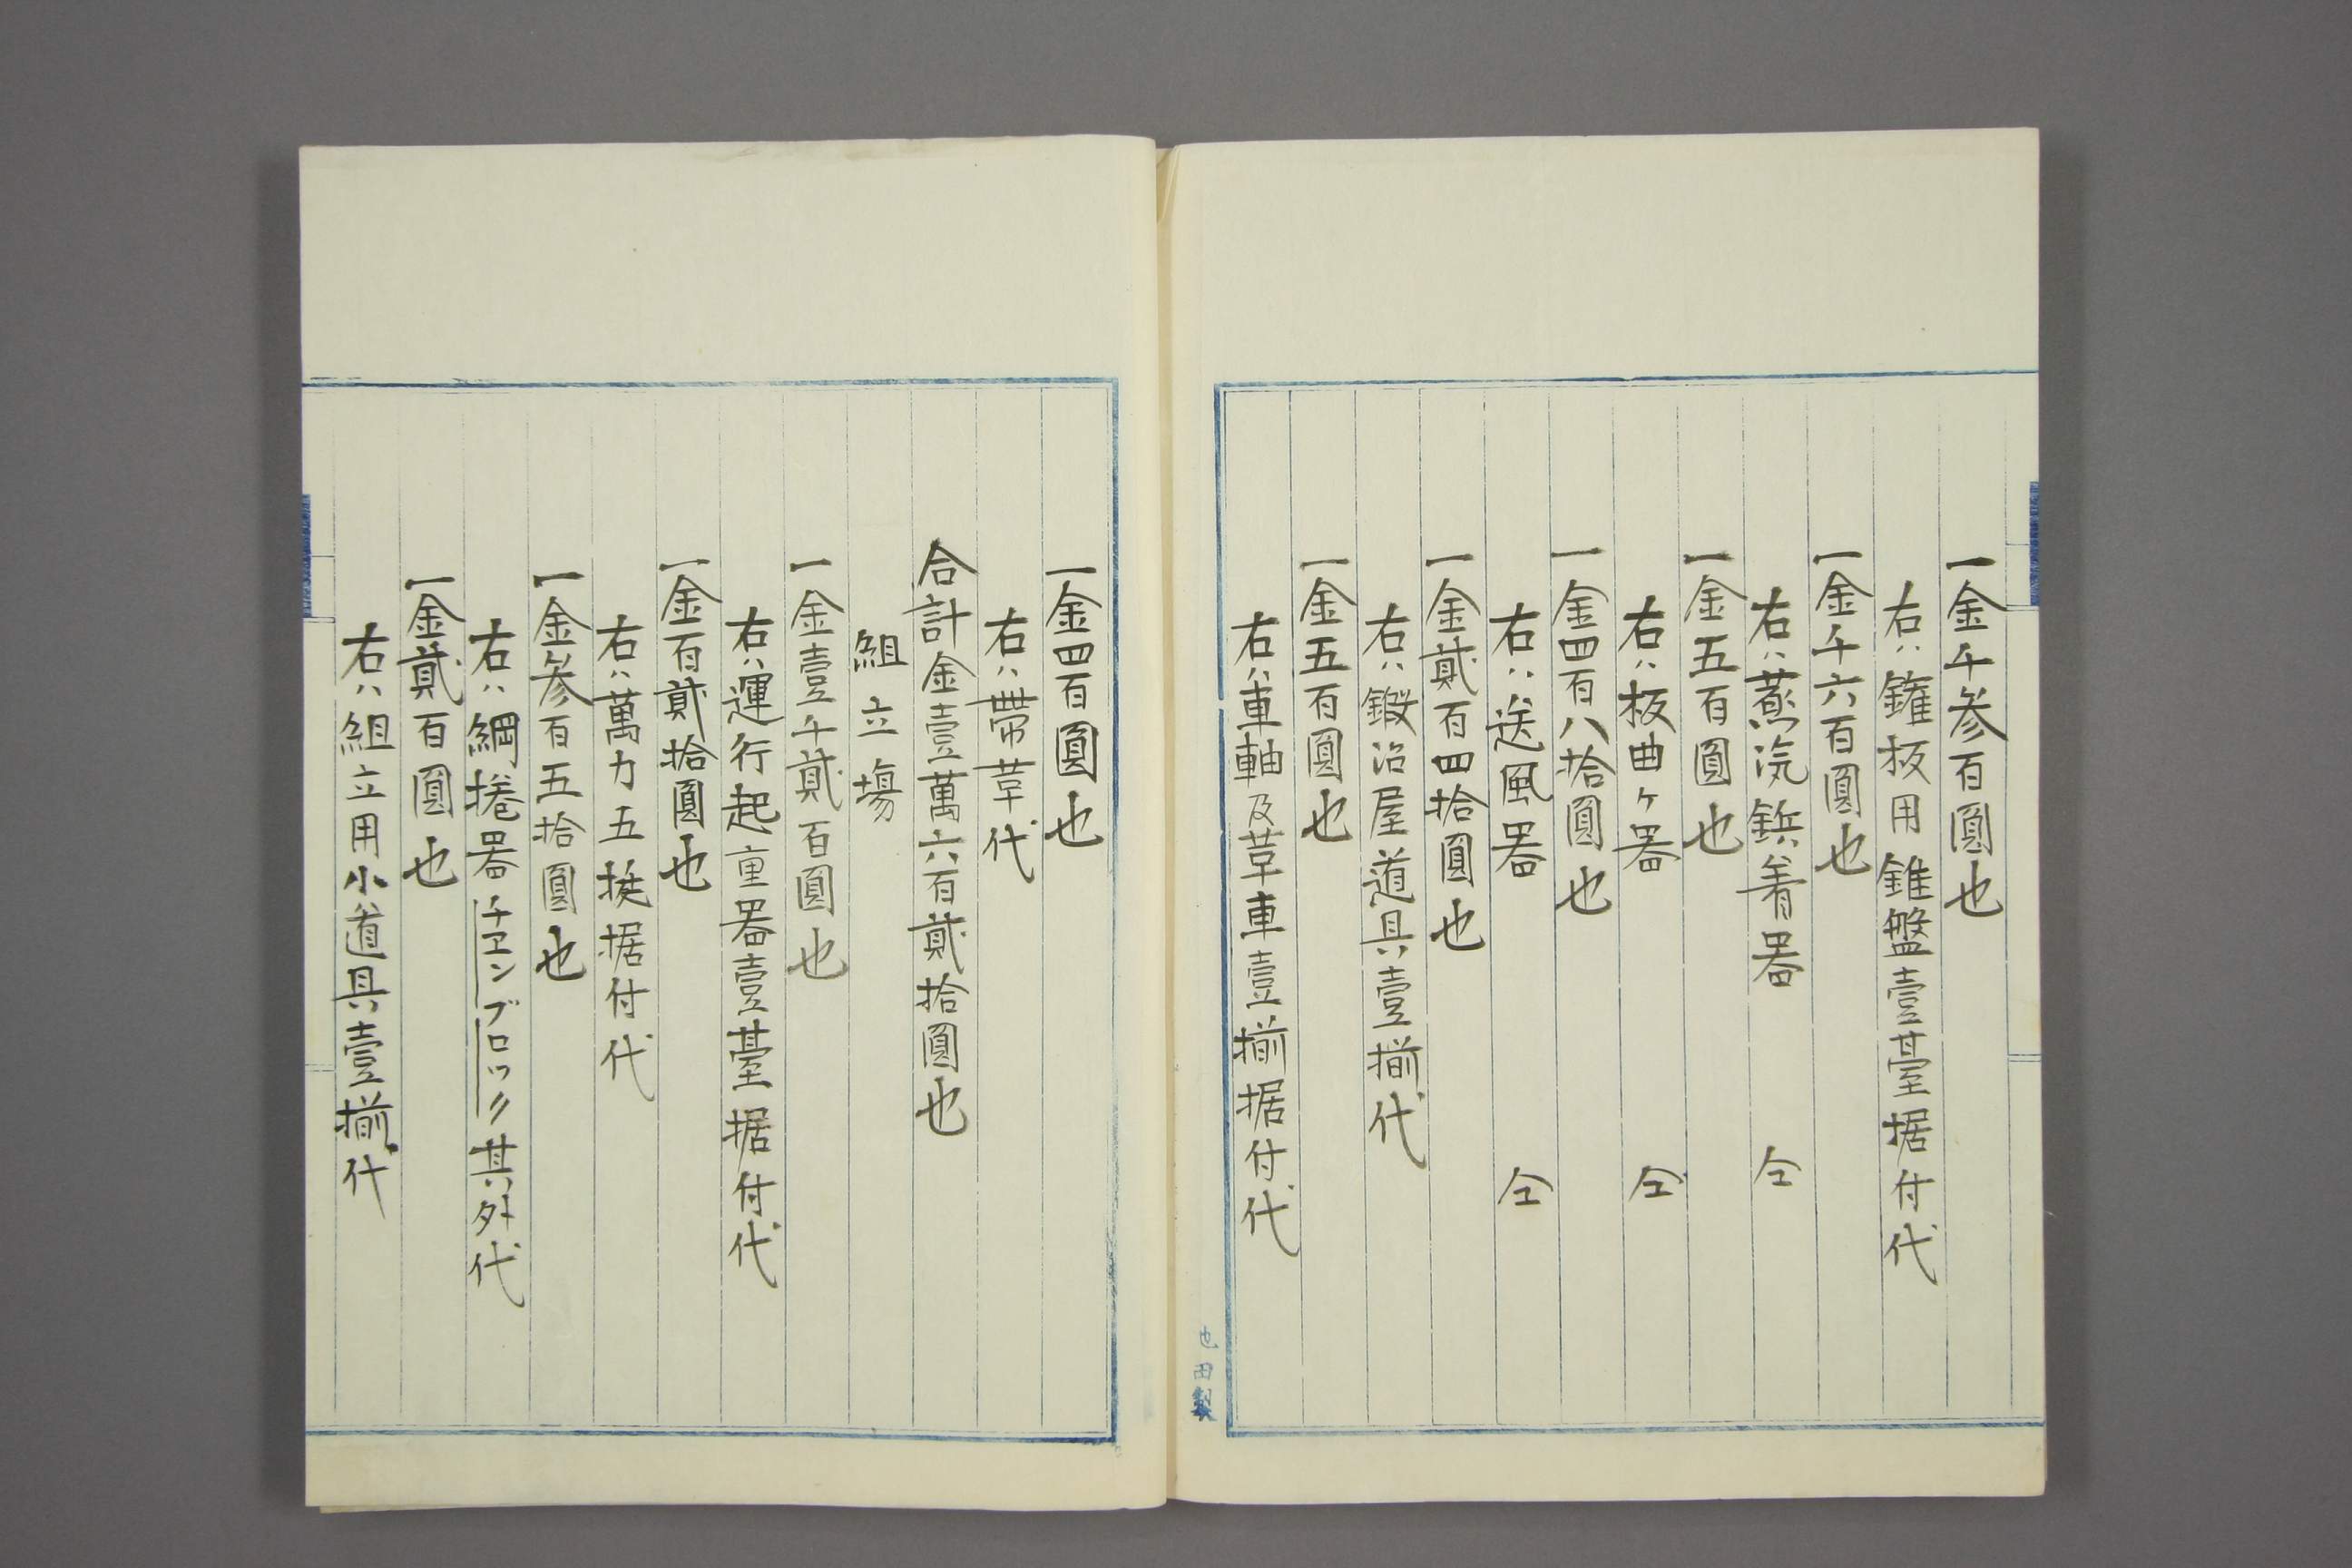 一金千参百圓也
右ハ鑵板用錐盤壹臺据付代
一金千六百圓也
右ハ蒸汽鋲着器 仝
一金五百圓也
右ハ板曲ヶ器 仝
一金四百八拾圓也
右ハ送風器 仝
一金貳百四拾圓也
右ハ鍛冶屋道具壹揃代
一金五百圓也
右ハ車軸及革車壹揃据付代
一金四百圓也
右ハ帶革代
合計金壹萬六百貳拾圓也
組立場
一金壹千貳百圓也
右ハ運行起重器壹臺据付代
一金百貳拾圓也
右ハ萬力五挺据付代
一金参百五拾圓也
右ハ綱捲器チヱンブロック其外代
一金貳百圓也
右ハ組立用小道具壹揃代